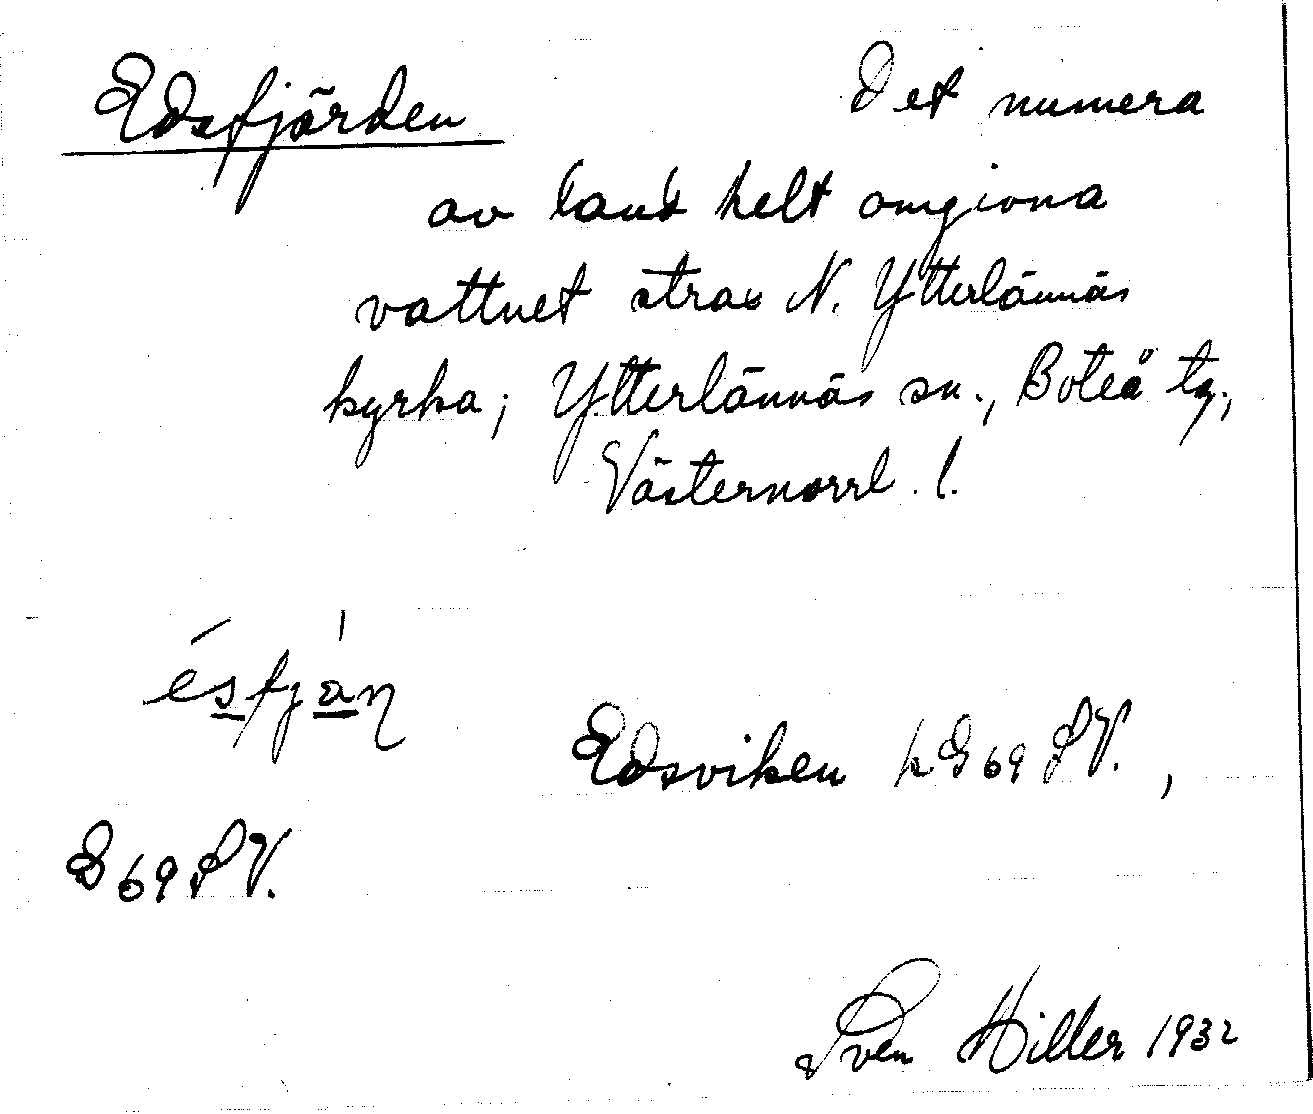 Edsfjärden Det numera
av land helt omgivna
vattnet strax N. Ytterlännäs
kyrka; Ytterlännäs sn., Boteå tg.,
Västernorrl. l.
ésfján
Edsviken k G 69 SV.,
G 69 SV.
Sven Hiller 1932